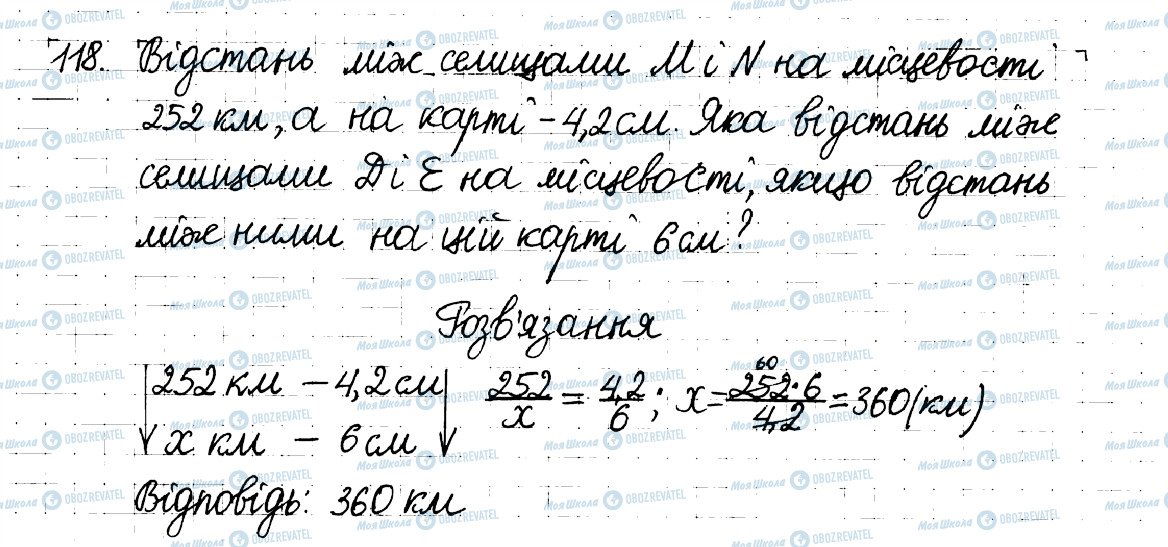 118. Відстань між селищами М і N на місцевості
252 км, а на карті - 4,2 см. Яка відстань між
селищами D і E на місцевості, якщо відстань
між ними на цій карті 6 см?
Розв'язання
252 км - 4,2 см 252/x = 4,2/6; x = 252·6/4,2 = 360 (км)
60
x км - 6 см
Відповідь: 360 км